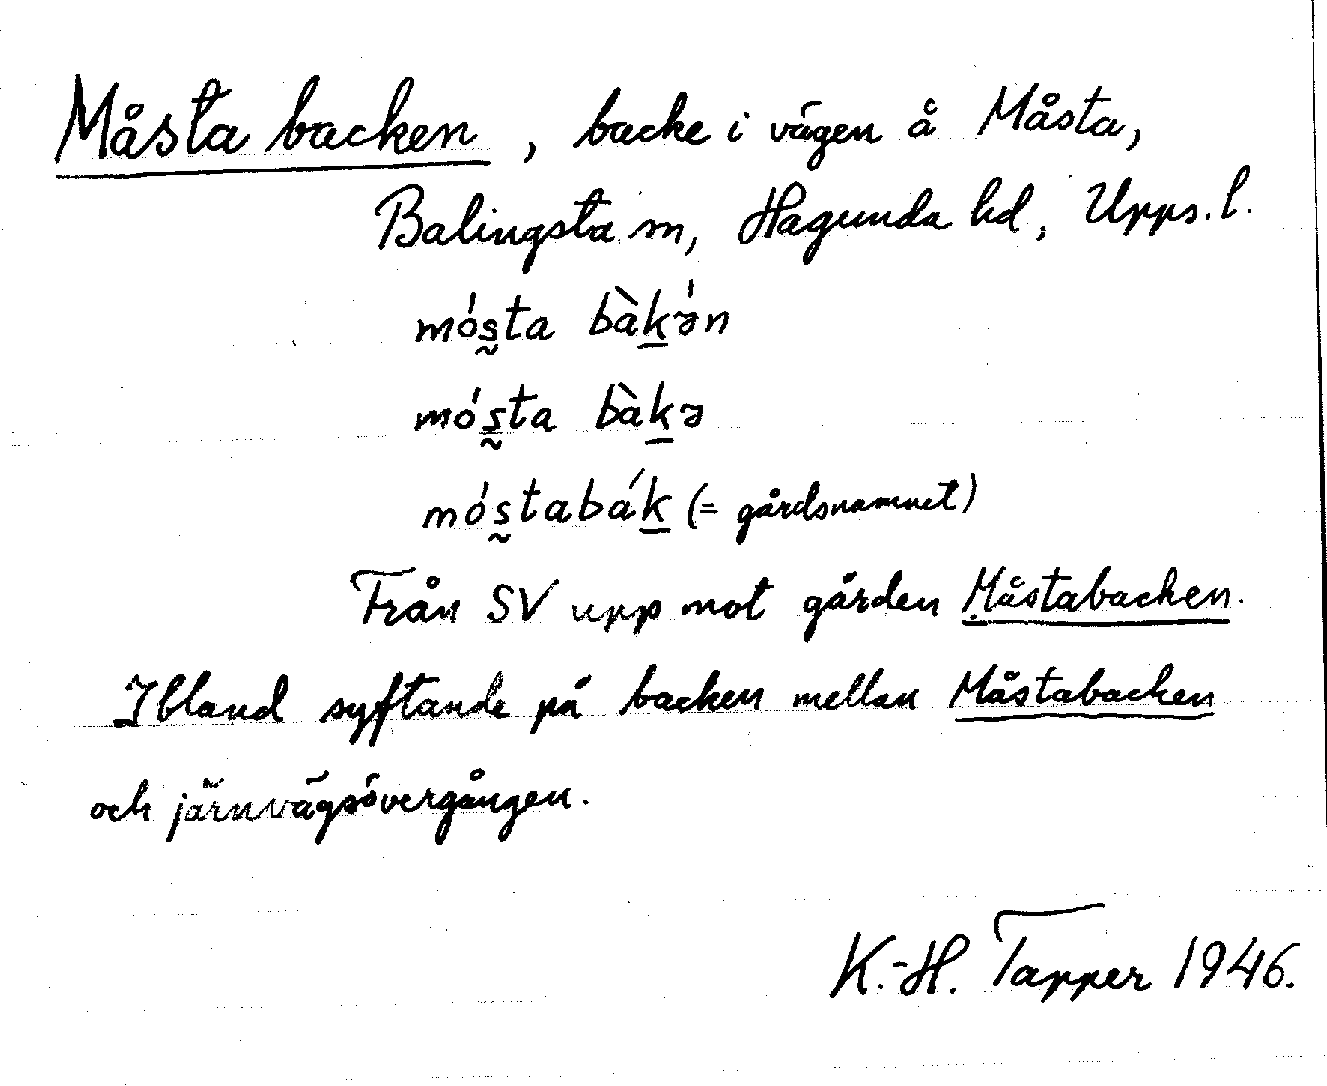 Måsta backen, backe i vägen å Måsta,
Balingsta sn, Hagunda hd, Upps. l.
mós̰ta bàk̲ə́n
mós̰ta bàk̲ə
mós̰tabák̲ (= gårdsnamnet)
Från SV upp mot gården Måstabacken.
Ibland syftande på backen mellan Måstabacken
och järnvägsövergången.
K.-H. Tapper 1946.